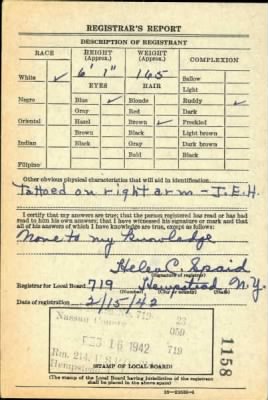 REGISTRAR'S REPORT
DESCRIPTION OF REGISTRANT
RACE HEIGHT (Approx.) WEIGHT (Approx.) COMPLEXION
White ✓ 6' 1" 165 Sallow
EYES HAIR Light
Negro Blue ✓ Blonde Ruddy ✓
Gray Red Dark
Oriental Hazel Brown ✓ Freckled
Brown Black Light brown
Indian Black Gray Dark brown
Bald Black
Filipino
Other obvious physical characteristics that will aid in identification
Tattoed on right arm - J.E.H.
I certify that my answers are true; that the person registered has read or has had
read to him his own answers; that I have witnessed his signature or mark and that
all of his answers of which I have knowledge are true, except as follows:
None to my knowledge
Helen C. Spaid
(Signature of registrar)
Registrar for Local Board 719 Hempstead N.Y.
(Number) (City or county) (State)
Date of registration 2/15/42
Nassau County 719 23
059
16 1942 719
Rm. 214, U.S.
Hempstead
(STAMP OF LOCAL BOARD)
(The stamp of the Local Board having jurisdiction of the registrant
shall be placed in the above space)
1158